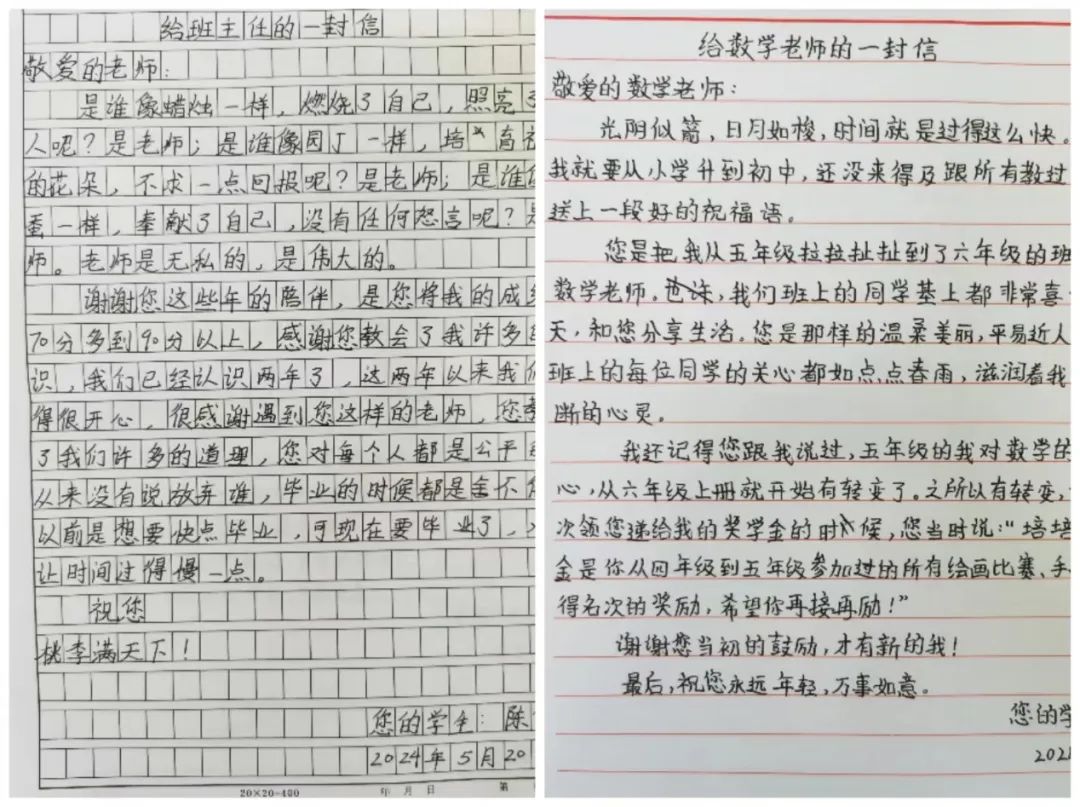 给班主任的一封信
敬爱的老师：
是谁像蜡烛一样，燃烧了自己，照亮了
人呢？是老师；是谁像园丁一样，培育祖
的花朵，不求一点回报呢？是老师；是谁像
蚕一样，奉献了自己，没有任何怨言呢？是
师。老师是无私的，是伟大的。
谢谢您这些年的陪伴，是您将我的成绩
70分多到90分以上，感谢您教会了我许多的
识，我们已经认识两年了，这两年以来我们
得很开心，很感谢遇到您这样的老师，您教
了我们许多的道理，您对每个人都是公平
从来没有说放弃谁，毕业的时候都是舍不得
以前是想要快点毕业，可现在要毕业了，
让时间过得慢一点。
祝您
桃李满天下！
您的学生：陈
2024年5月20
20×20=400 年 月 日 第
给数学老师的一封信
敬爱的数学老师：
光阴似箭，日月如梭，时间就是过得这么快。
我就要从小学升到初中，还没来得及跟所有教过
送上一段好的祝福语。
您是把我从五年级拉拉扯扯到了六年级的班
数学老师。也许，我们班上的同学基上都非常喜
天，和您分享生活。您是那样的温柔美丽，平易近人
班上的每位同学的关心都如点点春雨，滋润着我
断的心灵。
我还记得您跟我说过，五年级的我对数学的
心，从六年级上册就开始有转变了。之所以有转变，
次领您递给我的奖学金的时候，您当时说：“培培
金是你从四年级到五年级参加过的所有绘画比赛、手
得名次的奖励，希望你再接再励！”
谢谢您当初的鼓励，才有新的我！
最后，祝您永远年轻，万事如意。
您的学
202